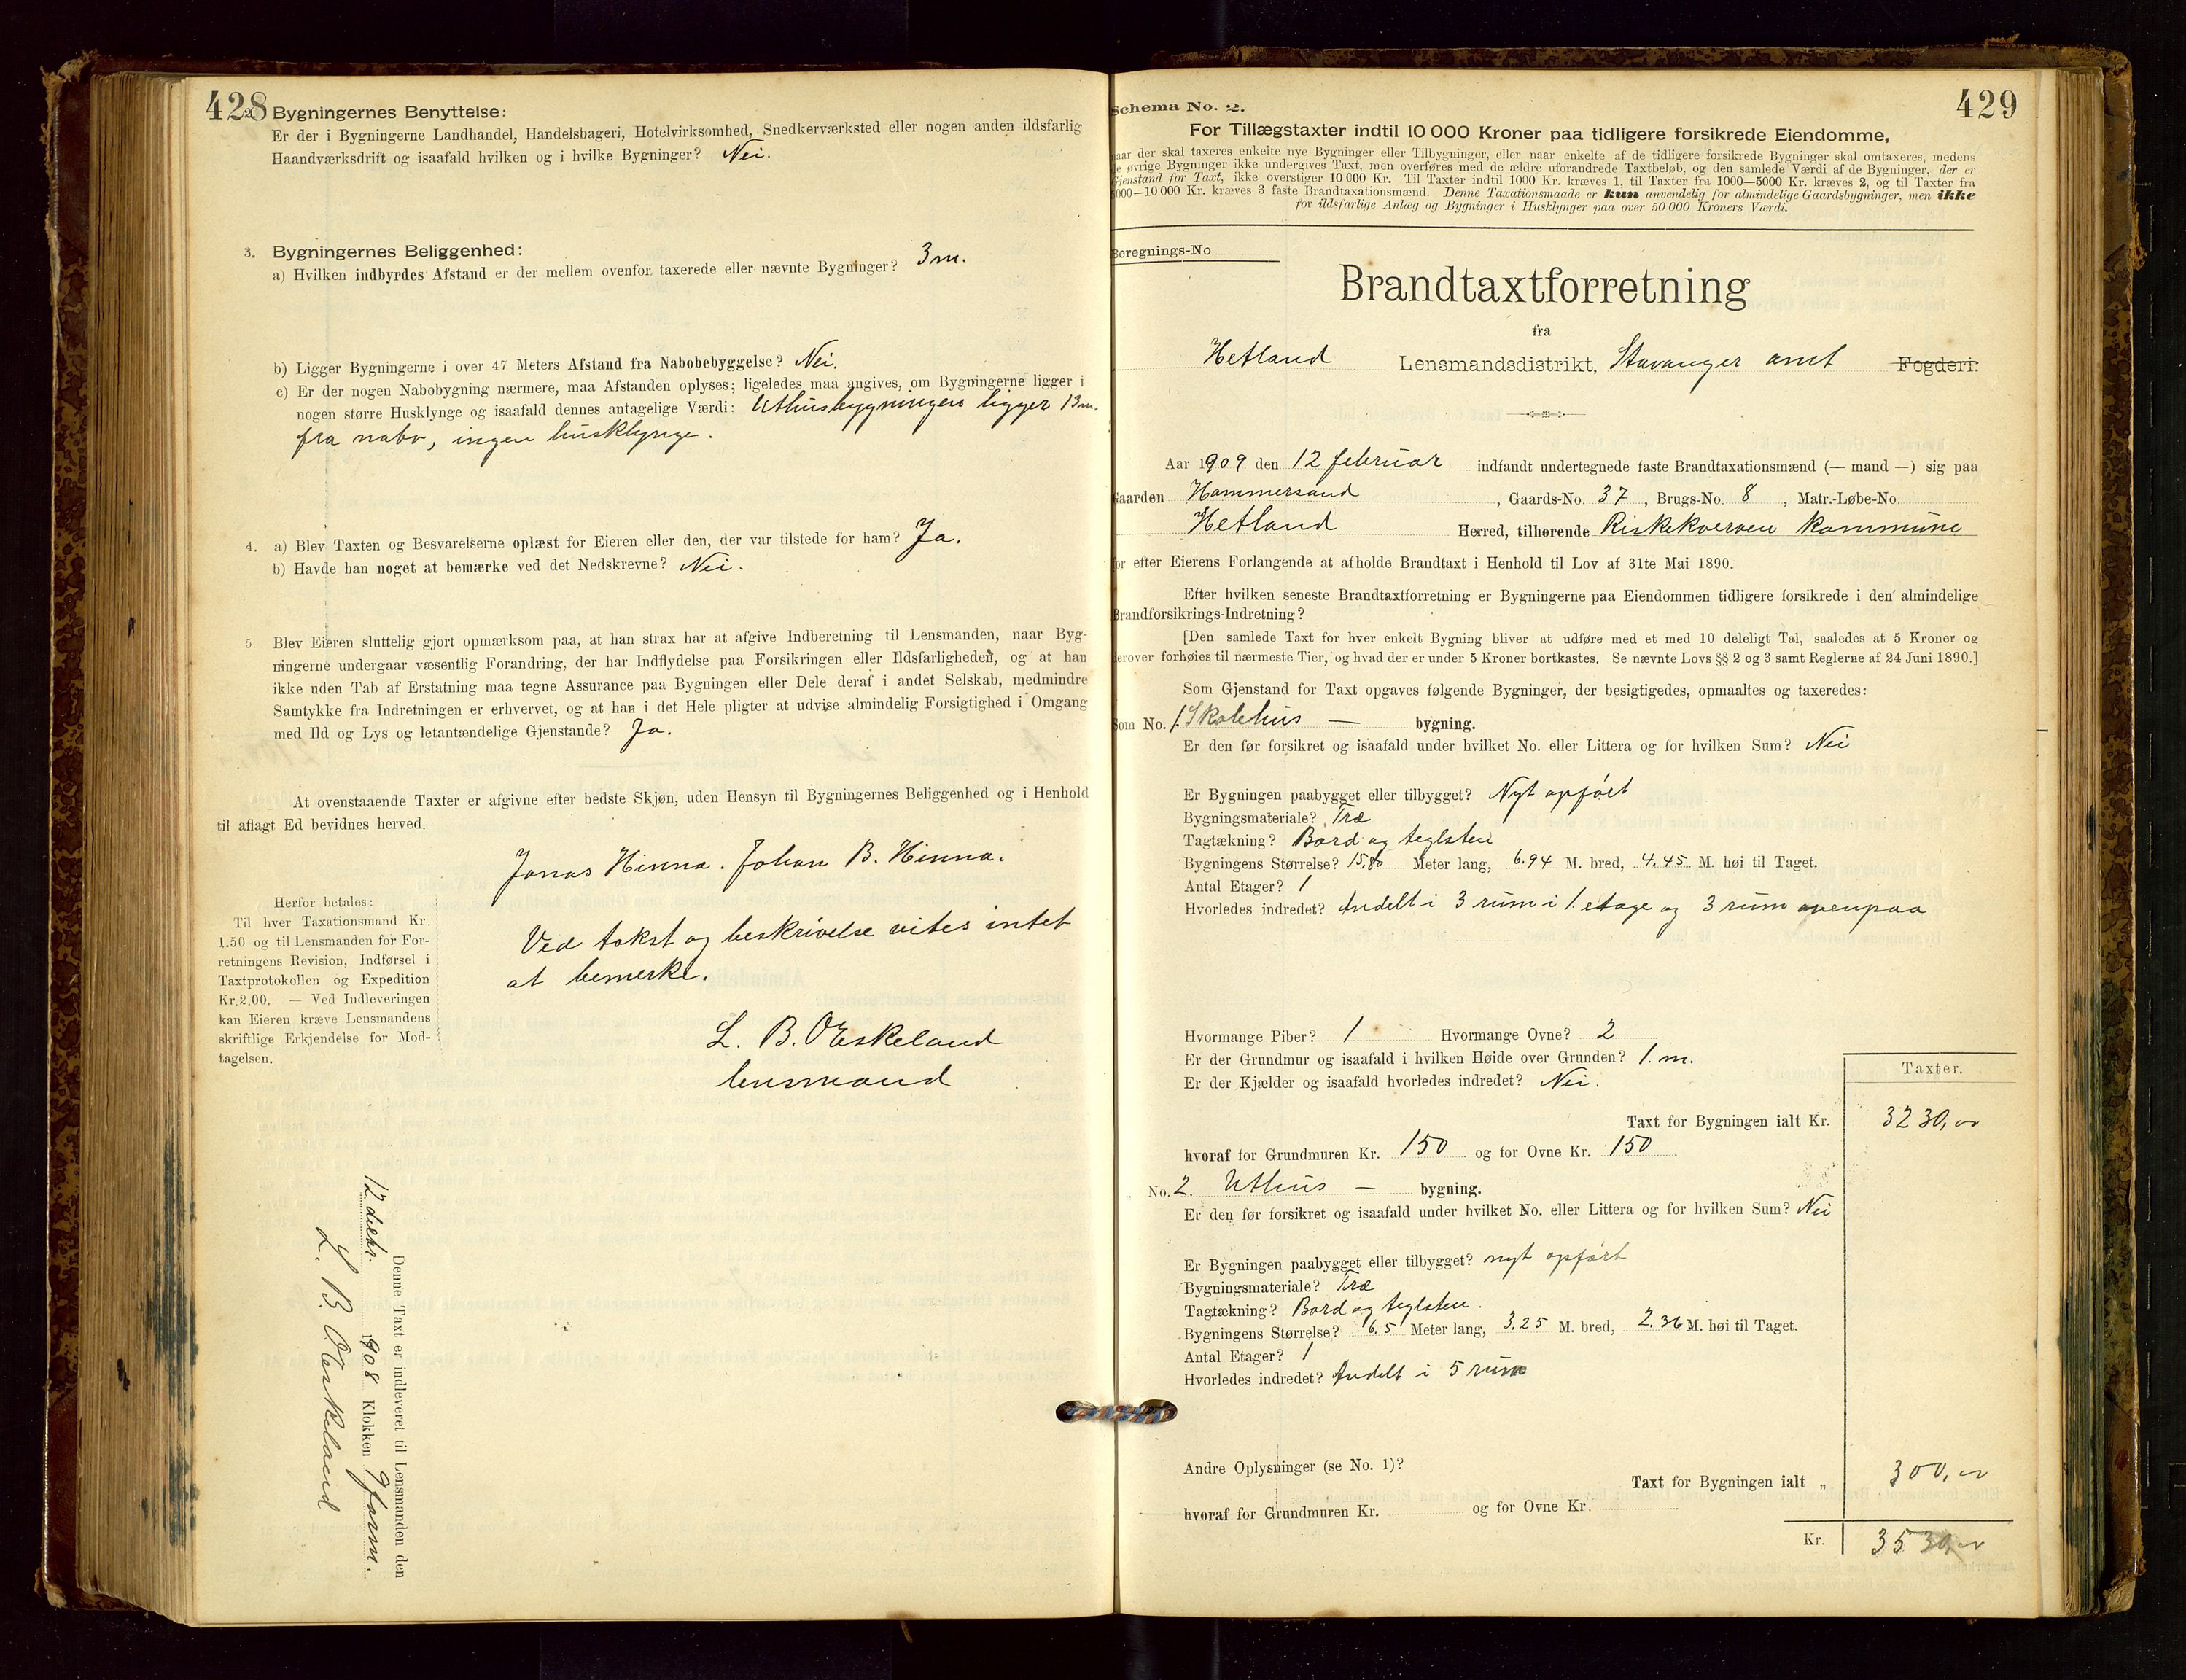 428
2. Bygningernes Benyttelse:
Er der i Bygningerne Landhandel, Handelsbageri, Hotelvirksomhed, Snedkerværksted eller nogen anden ildsfarlig
Haandværksdrift og isaafald hvilken og i hvilke Bygninger? Nei.
3. Bygningernes Beliggenhed:
a) Hvilken indbyrdes Afstand er der mellem ovenfor taxerede eller nævnte Bygninger? 3 m.
b) Ligger Bygningerne i over 47 Meters Afstand fra Nabobebyggelse? Nei.
c) Er der nogen Nabobygning nærmere, maa Afstanden oplyses; ligeledes maa angives, om Bygningerne ligger i
nogen større Husklynge og isaafald dennes antagelige Værdi: Uthusbygningen ligger 13 m.
fra nabo, ingen husklynge.
4. a) Blev Taxten og Besvarelserne oplæst for Eieren eller den, der var tilstede for ham? Ja.
b) Havde han noget at bemærke ved det Nedskrevne? Nei.
5. Blev Eieren sluttelig gjort opmærksom paa, at han strax har at afgive Indberetning til Lensmanden, naar Byg-
ningerne undergaar væsentlig Forandring, der har Indflydelse paa Forsikringen eller Ildsfarligheden, og at han
ikke uden Tab af Erstatning maa tegne Assurance paa Bygningen eller Dele deraf i andet Selskab, medmindre
Samtykke fra Indretningen er erhvervet, og at han i det Hele pligter at udvise almindelig Forsigtighed i Omgang
med Ild og Lys og letantændelige Gjenstande? Ja.
At ovenstaaende Taxter er afgivne efter bedste Skjøn, uden Hensyn til Bygningernes Beliggenhed og i Henhold
til aflagt Ed bevidnes herved.
Jonas Hinna. Johan B. Hinna.
Herfor betales:
Til hver Taxationsmand Kr.
1.50 og til Lensmanden for For-
retningens Revision, Indførsel i
Taxtprotokollen og Expedition
Kr. 2,00. — Ved Indleveringen
kan Eieren kræve Lensmandens
skriftlige Erkjendelse for Mod-
tagelsen.
Ved takst og beskrivelse vites intet
at bemerke.
L. B. Øskeland
lensmand
Denne Taxt er indleveret til Lensmanden den
12 1908 Klokken 9 form.
L. B. Øskeland
Schema No. 2.
429
For Tillægstaxter indtil 10 000 Kroner paa tidligere forsikrede Eiendomme,
naar der skal taxeres enkelte nye Bygninger eller Tilbygninger, eller naar enkelte af de tidligere forsikrede Bygninger skal omtaxeres, medens
de øvrige Bygninger ikke undergives Taxt, men overføres med de ældre uforandrede Taxtbeløb, og den samlede Værdi af de Bygninger, der er
Gjenstand for Taxt, ikke overstiger 10 000 Kr. Til Taxter indtil 1000 Kr. kræves 1, til Taxter fra 1000—5000 Kr. kræves 2, og til Taxter fra
5000—10 000 Kr. kræves 3 faste Brandtaxationsmænd. Denne Taxationsmaade er kun anvendelig for almindelige Gaardsbygninger, men ikke
for ildsfarlige Anlæg og Bygninger i Husklynger paa over 50 000 Kroners Værdi.
Beregnings-No
Brandtaxtforretning
fra
Hetland Lensmandsdistrikt, Stavanger amt Fogderi.
Aar 1909 den 12 februar indfandt undertegnede faste Brandtaxationsmænd (— mand —) sig paa
Gaarden Hammersand, Gaards-No. 37, Brugs-No. 8, Matr.-Løbe-No.
Hetland Herred, tilhørende Riskekverven kommune
for efter Eierens Forlangende at afholde Brandtaxt i Henhold til Lov af 31te Mai 1890.
Efter hvilken seneste Brandtaxtforretning er Bygningerne paa Eiendommen tidligere forsikrede i den almindelige
Brandforsikrings-Indretning?
[Den samlede Taxt for hver enkelt Bygning bliver at udføre med et med 10 deleligt Tal, saaledes at 5 Kroner og
derover forhøies til nærmeste Tier, og hvad der er under 5 Kroner bortkastes. Se nævnte Lovs §§ 2 og 3 samt Reglerne af 24 Juni 1890.]
Som Gjenstand for Taxt opgaves følgende Bygninger, der besigtigedes, opmaaltes og taxeredes:
Som No. 1. Skolehus — bygning.
Er den før forsikret og isaafald under hvilket No. eller Littera og for hvilken Sum? Nei
Er Bygningen paabygget eller tilbygget? Nyt opført
Bygningsmateriale? Træ
Tagtækning? Bord og teglsten
Bygningens Størrelse? 15,80 Meter lang, 6.94 M. bred, 4.45 M. høi til Taget.
Antal Etager? 1
Hvorledes indredet? Indelt i 3 rum i 1. etage og 3 rum ovenpaa
Hvormange Piber? 1 Hvormange Ovne? 2
Er der Grundmur og isaafald i hvilken Høide over Grunden? 1. m.
Er der Kjælder og isaafald hvorledes indredet? Nei.
Taxter.
Taxt for Bygningen ialt Kr. 3230,00
hvoraf for Grundmuren Kr. 150 og for Ovne Kr. 150
„ No. 2. Uthus — bygning.
Er den før forsikret og isaafald under hvilket No. eller Littera og for hvilken Sum? Nei
Er Bygningen paabygget eller tilbygget? nyt opført
Bygningsmateriale? Træ
Tagtækning? Bord og teglsten.
Bygningens Størrelse? 6,5 Meter lang, 3.25 M. bred, 2.36 M. høi til Taget.
Antal Etager? 1
Hvorledes indredet? Indelt i 5 rum
Andre Oplysninger (se No. 1)?
Taxt for Bygningen ialt „ 300,00
hvoraf for Grundmuren Kr. og for Ovne Kr.
Kr. 3530,00